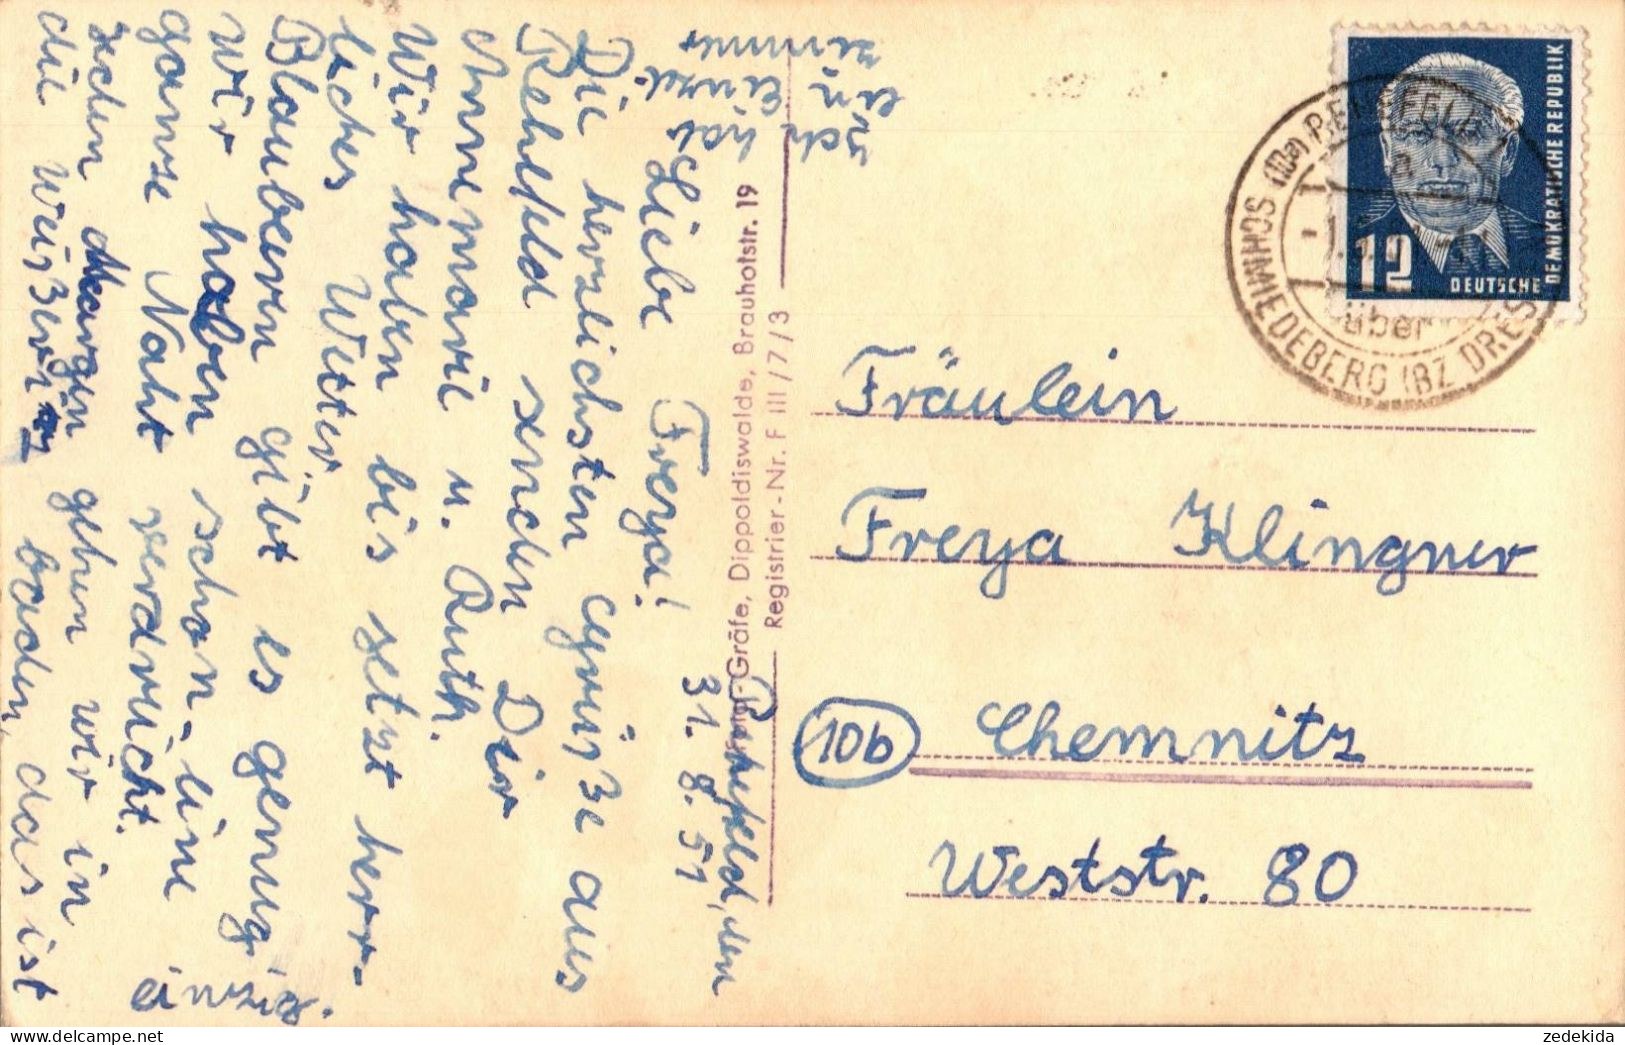 Rehefeld, den
31. 8. 51
Liebe Freya!
Die herzlichsten Grüße aus
Rehefeld senden Dir
Annemarie u. Ruth.
Wir haben bis jetzt herr-
liches Wetter.
Blaubeeren gibt es genug,
wir haben schon eine
ganze Naht verdrückt.
Jeden Morgen gehen wir in
die Weißeritz baden, das ist
einzig.
Ich hab
ein Einzel-
zimmer
Gräfe, Dippoldiswalde, Brauhofstr. 19
Registrier-Nr. F III/7/3
12
DEUTSCHE
DEMOKRATISCHE REPUBLIK
REHEFELD
über
SCHMIEDEBERG (BZ DRESDEN)
Fräulein
Freya Klingner
10b Chemnitz
Weststr. 80
zedekida